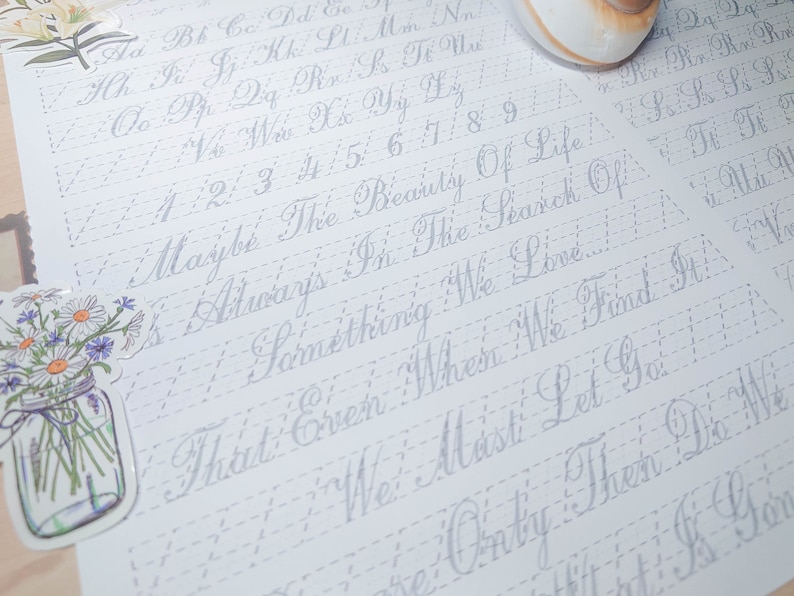 Aa Bb Cc Dd Ee
Hh Ii Jj Kk Ll Mm Nn
Oo Pp Qq Rr Ss Tt Uu
Vv Ww Xx Yy Zz
1 2 3 4 5 6 7 8 9
Maybe The Beauty Of Life
Is Always In The Search Of
Something We Love...
That Even When We Find It
We Must Let Go.
Only Then Do We
What Is Gon
Qq Qq Qq
Rr Rr Rr Rr
Ss Ss Ss Ss
Tt Tt Tt
Uu Uu Uu